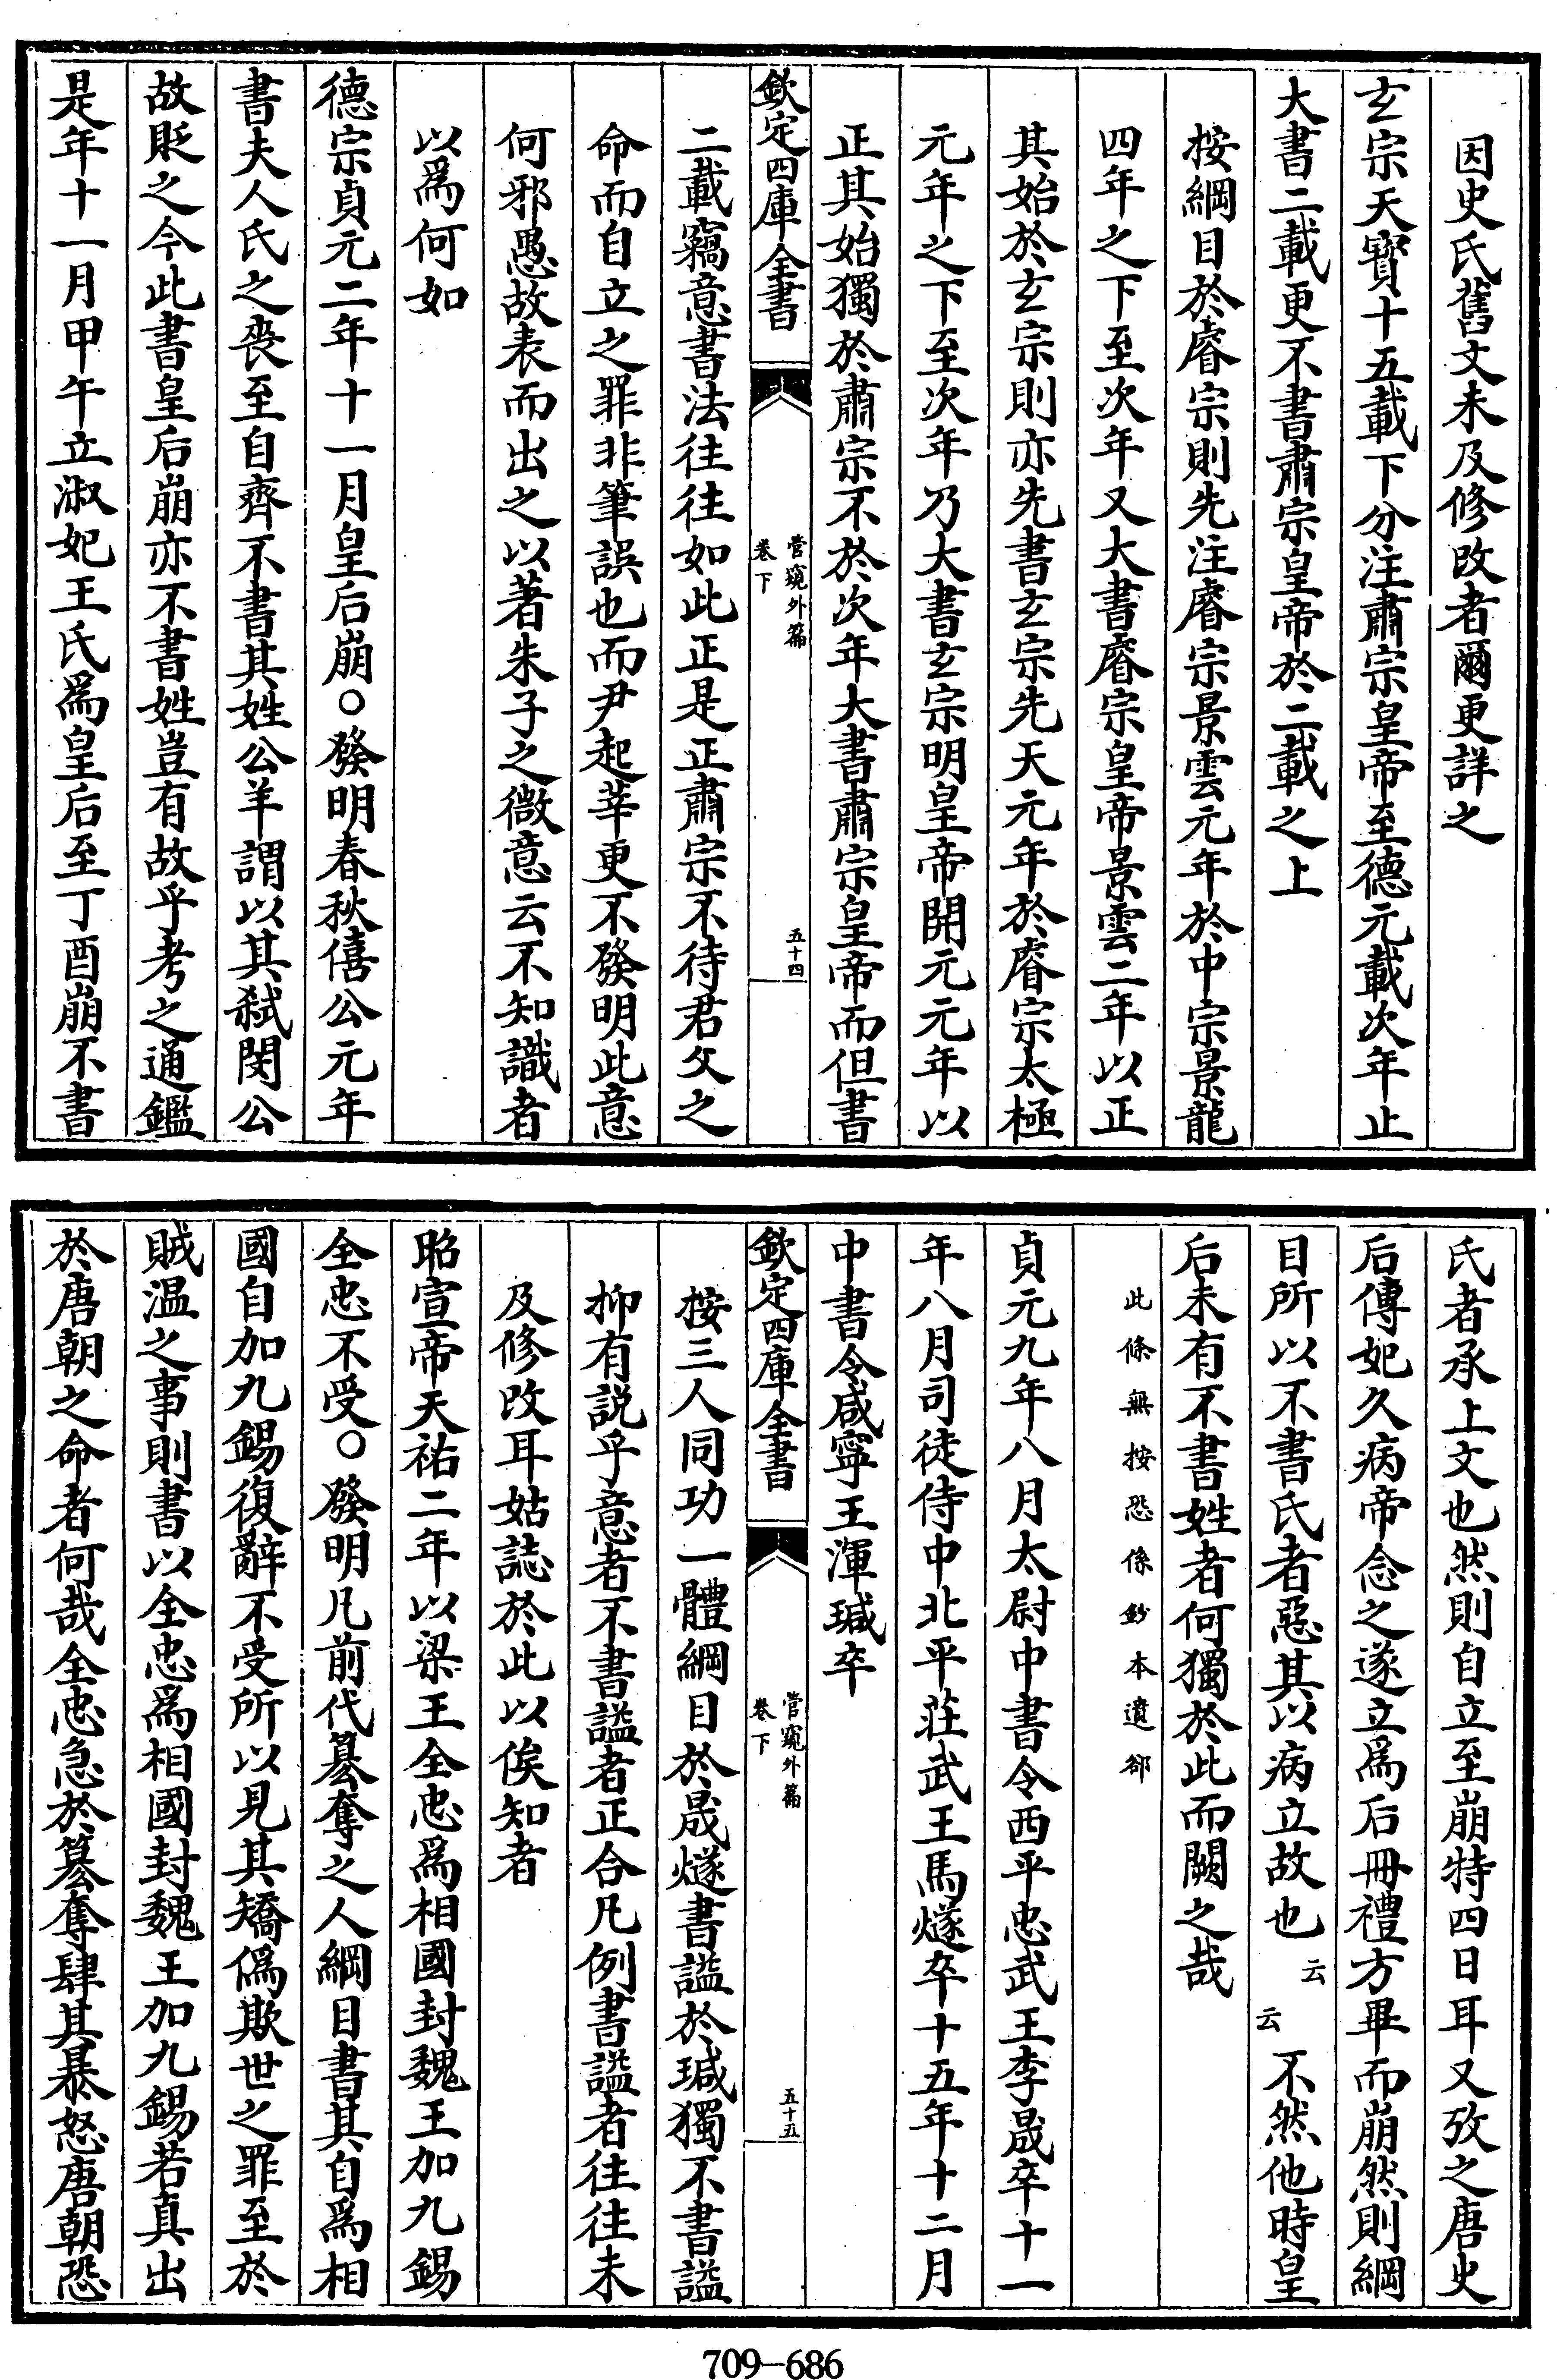 因史氏舊文未及修改者爾更詳之
玄宗天寳十五載下分注肅宗皇帝至德元載次年止
大書二載更不書肅宗皇帝於二載之上
按綱目於睿宗則先注睿宗景雲元年於中宗景龍
四年之下至次年又大書睿宗皇帝景雲二年以正
其始於玄宗則亦先書玄宗先天元年於睿宗太極
元年之下至次年乃大書玄宗明皇帝開元元年以
正其始獨於肅宗不於次年大書肅宗皇帝而但書
欽定四庫全書
管窺外篇
卷下
五十四
二載竊意書法往往如此正是正肅宗不待君父之
命而自立之罪非筆誤也而尹起莘更不發明此意
何邪愚故表而出之以著朱子之微意云不知識者
以為何如
德宗貞元二年十一月皇后崩○發明春秋僖公元年
書夫人氏之喪至自齊不書其姓公羊謂以其弑閔公
故貶之今此書皇后崩亦不書姓豈有故乎考之通鑑
是年十一月甲午立淑妃王氏為皇后至丁酉崩不書
氏者承上文也然則自立至崩特四日耳又攷之唐史
后傳妃久病帝念之遂立為后冊禮方畢而崩然則綱
目所以不書氏者惡其以病立故也云云不然他時皇
后未有不書姓者何獨於此而闕之哉
此條無按恐係鈔本遺郤
貞元九年八月太尉中書令西平忠武王李晟卒十一
年八月司徒侍中北平莊武王馬燧卒十五年十二月
中書令咸寧王渾瑊卒
欽定四庫全書
管窺外篇
卷下
五十五
按三人同功一體綱目於晟燧書謚於瑊獨不書謚
抑有説乎意者不書謚者正合凡例書謚者往往未
及修改耳姑誌於此以俟知者
昭宣帝天祐二年以梁王全忠為相國封魏王加九錫
全忠不受○發明凡前代篡奪之人綱目書其自為相
國自加九錫復辭不受所以見其矯僞欺世之罪至於
賊溫之事則書以全忠為相國封魏王加九錫若真出
於唐朝之命者何哉全忠急於篡奪肆其暴怒唐朝恐
709-686